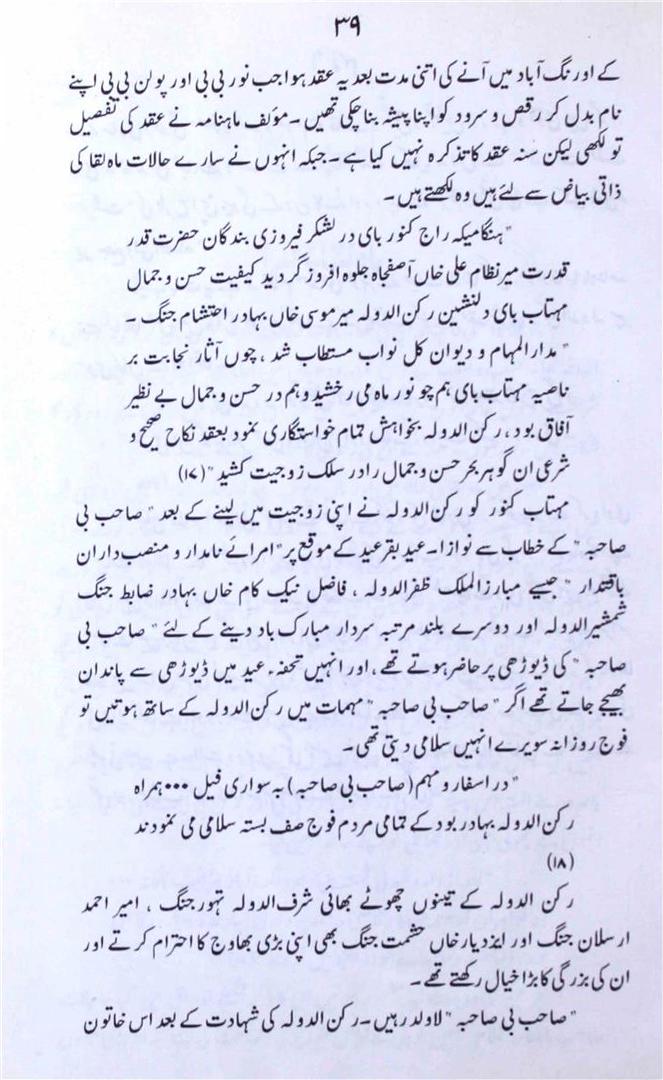 ۳۹
کے اورنگ آباد میں آنے کی اتنی مدت بعد یہ عقد ہوا جب نور بی بی اور پولن بی بی اپنے
نام بدل کر رقص و سرود کو اپنا پیشہ بنا چکی تھیں۔ مؤلف ماہنامہ نے عقد کی تفصیل
تو لکھی لیکن سنہ عقد کا تذکرہ نہیں کیا ہے۔ جبکہ انہوں نے سارے حالات ماہ لقا کی
ذاتی بیاض سے لئے ہیں وہ لکھتے ہیں۔
"ہنگامیکہ راج کنور بای در لشکر فیروزی بندگان حضرت قدر
قدرت میر نظام علی خاں آصفجاہ جلوہ افروز گردید کیفیت حسن و جمال
مہتاب بای دلنشین رکن الدولہ میر موسی خاں بہادر احتشام جنگ۔
"مدار المہام و دیوان کل نواب مستطاب شد، چوں آثار نجابت بر
ناصیہ مہتاب بای ہم چو نور ماہ می رخشید و ہم در حسن و جمال بے نظیر
آفاق بود، رکن الدولہ بخواہش تمام خواستگاری نمود بعقد نکاح صحیح و
شرعی ان گوہر بحر حسن و جمال را در سلک زوجیت کشید" (۱۷)
مہتاب کنور کو رکن الدولہ نے اپنی زوجیت میں لینے کے بعد "صاحب بی
صاحبہ" کے خطاب سے نوازا۔ عید بقر عید کے موقع پر "امرائے نامدار و منصب داران
باقتدار" جیسے مبارز الملک ظفر الدولہ، فاضل نیک کام خاں بہادر ضابط جنگ
شمشیر الدولہ اور دوسرے بلند مرتبہ سردار مبارک باد دینے کے لئے "صاحب بی
صاحبہ" کی ڈیوڑھی پر حاضر ہوتے تھے، اور انہیں تحفہ۔ عید میں ڈیوڑھی سے پاندان
بھیجے جاتے تھے اگر "صاحب بی صاحبہ" مہمات میں رکن الدولہ کے ساتھ ہوتیں تو
فوج روزانہ سویرے انہیں سلامی دیتی تھی۔
"در اسفار و مہم (صاحب بی صاحبہ) بہ سواری فیل ۰۰۰ ہمراہ
رکن الدولہ بہادر بود کے تمامی مردم فوج صف بستہ سلامی می نمودند
(۱۸)
رکن الدولہ کے تینوں چھوٹے بھائی شرف الدولہ تہور جنگ، امیر احمد
ارسلان جنگ اور ایزدیار خاں حشمت جنگ بھی اپنی بڑی بھاوج کا احترام کرتے اور
ان کی بزرگی کا بڑا خیال رکھتے تھے۔
"صاحب بی صاحبہ" لاولد رہیں۔ رکن الدولہ کی شہادت کے بعد اس خاتون